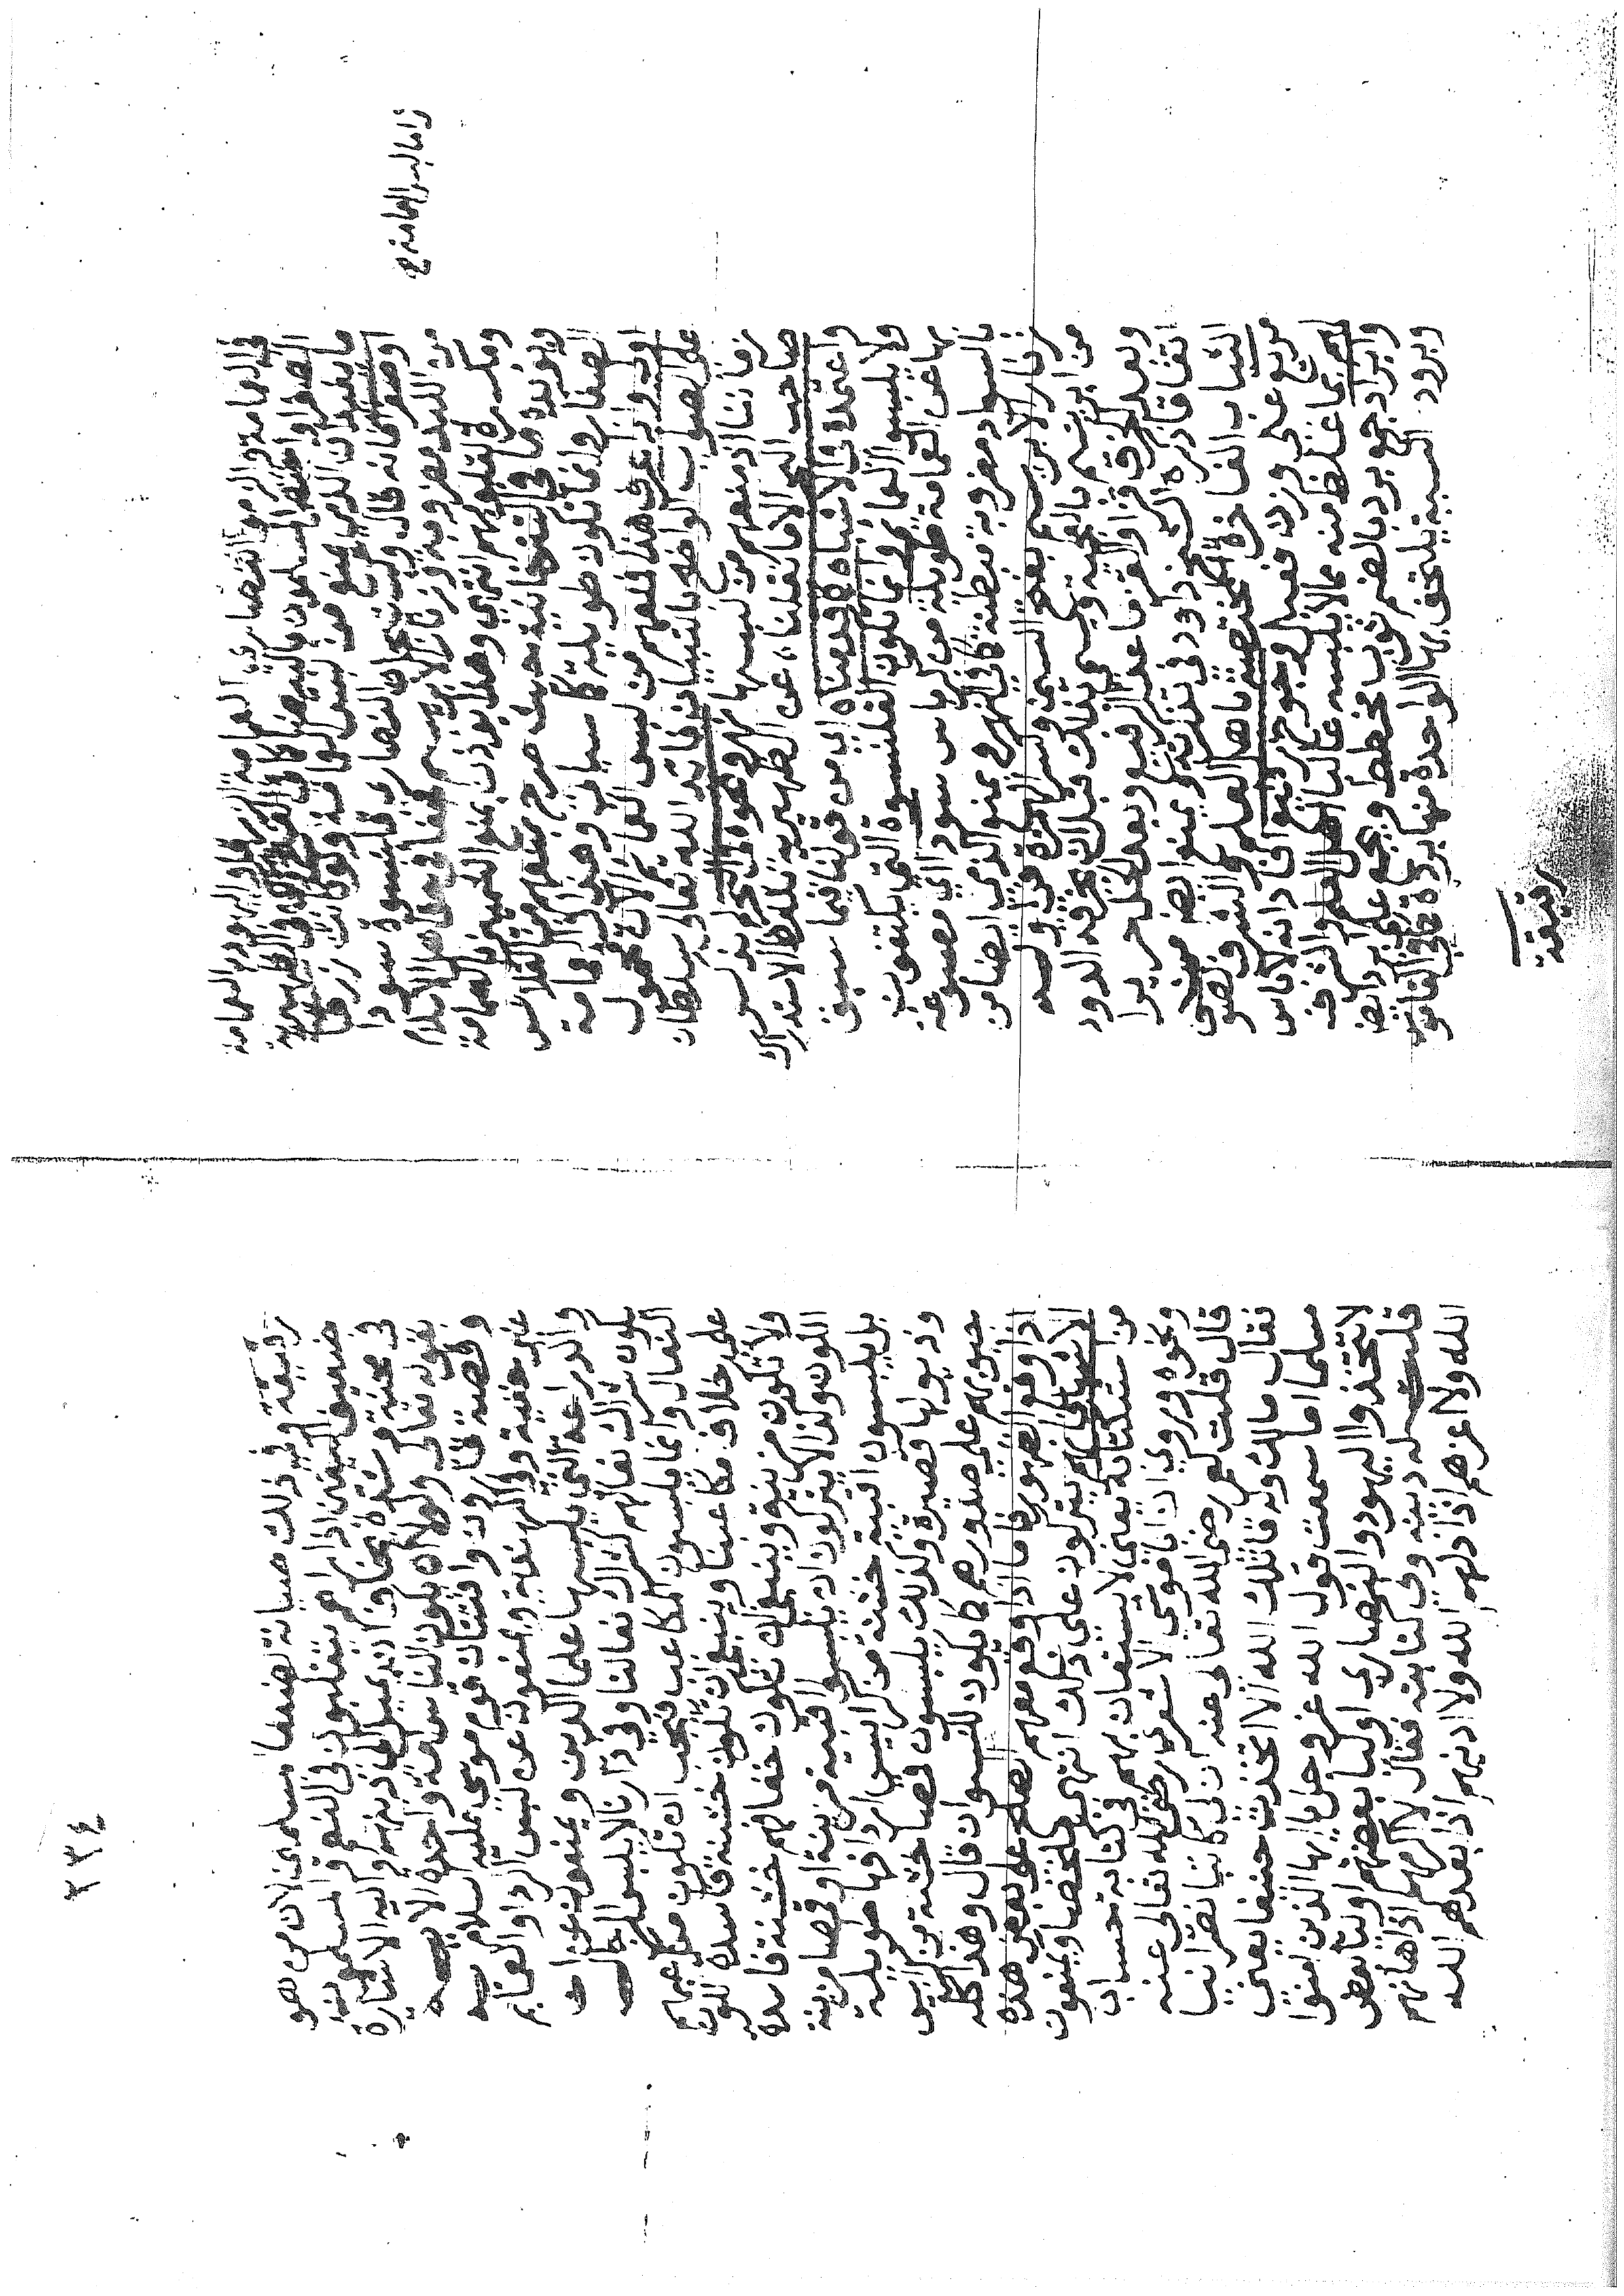 في العمامة والزموا النصاري العمامة الزرقا واليهود العمامة
الصفرا واختص المسلمون بالبيضا كما في الفتح وفي الظهيرية
ما يفيد ان الذمي يمنع من لبس العمامة ولو كانت زرقا
او صفرا فانه قال وليجعل النصاري قلنسوة سودا
من اللبد مضروبة وزنار الابريسم جفا في حق اهل الاسلام
ومكسرة لقلوبهم انتهي وهذا يؤذن بمنع التمييز بالعمامة
ويؤيده ما في التتارخانية حيث صرح بمنعهم من القلانس
الصغار وانما تكون طويلة كما سياتي وهذا في العمامة
اولي واذا عرف هذا فمنعهم من لبس العمائم الان محمول
علي الصواب الواضح بالتبيان فايد الله تعالي سلطان
زماننا اذ منعهم من لبسها نهر ونحوه في البحر
صاحب البحر الا ما نقلناه عن الظهيرية بلفظ الاستدراك
واعتمده في الاشباه كما قدمناه اي من قولنا فيما سبق
ولا يلبسوا العمائم وانما تكون القلنسوة التي يكتفون
بها عن العمامة طويلة من كرباس سود اي مصبوغة
بالسواد مضروبة مبطنة كما في النهر ويمنع الذمي ايضا من
زنار الابريسم بفتح السين وكسر الهمزة قز
من ابريسم بالعجمية وسمي بذلك قبل ان يخرقه الدود
وبعد الخرق قزا والقز ما عدا الرفيع وبعد الحل حريرا
لقفا قاذره الشيخ داود في تذكرته ويمنعوا ايضا من
الثياب الفاخرة المختصة باهل العلم والشرف كصوف
مربع غالي وزرق قضيا وجوخ رفيع افاد انه لا باس
لهم بما غلظ منه مما لا يلبسه غالبا اهل العلم والشرف
وابراد جمع برد بالضم ثوب مخطط ويجمع علي برود ايضا
وبرود اكسية يلتحف بها الواحدة منها بردة كما في القاموس
زاما لبس العمامة ع
رقيقة
٣٣٤
رقيقة وفي ذلك صيانة لضعفا المسلمين لان من هو
ضعيف اليقين اذا راهم يتقلبون في النعم والمسلمون
في محنة وشدة يخاف ان يميل الي دينهم واليه الاشارة
بقوله تعالي ولولا ان يكون الناس امة واحدة الاية
وقصة قارون وافتتان قوم موسي عليه السلام به
غير خفية وفي الهداية ويمنعون عن لبس الردا والعمايم
والدراعة التي يلبسها علما الدين ويمنعون عن ان
يكون شراك نعالهم كشراك نعالنا وفي ديارنا لا يلبس الرجال
النعال وانما يلبسون المكاعب فيجب ان تكون مكاعبهم
علي خلاف مكاعبنا وينبغي ان تكون خشنة فاسدة اللون
ولا تكون مزينة وينبغي ان تكون خفافهم خشنة فاسدة
اللون وكذا لا يتركون ان يلبسوا اقبية مزينة او قمصا مزينة
بل يلبسون اقبية خشنة من كرابيس اردافها طويلة
وذيولها قصيرة وكذلك يلبسون قمصا خشنة من كرابيس
جيوبهم علي صدورهم كما يكون للنسوان قال وهذا كله
اذا وقع الظهور فاما اذا وقع معهم الصلح علي بعض هذه
الاشيا فانهم يتركون علي ذلك انتهي ملخصا ويمنعون
من استكتابه يعني لا يستعان بهم في كتابة حساب
ونحوه وروي ان ابا موسي الاشعري رضي الله تعالي عنه
قال قلت لعمر رضي الله تعالي عنه ان لي كاتبا نصرانيا
فقال مالك وله قاتلك الله الا اتخذت حنيفا يعني
مسلما اما سمعت قول الله عز وجل يا ايها الذين امنوا
لا تتخذوا اليهود والنصاري اوليا بعضهم اوليا بعض
قلت له دينه ولي كتابته فقال لا اكرمهم اذ اهانهم
الله ولا اعزهم اذ اذلهم الله ولا ادنيهم اذ ابعدهم الله